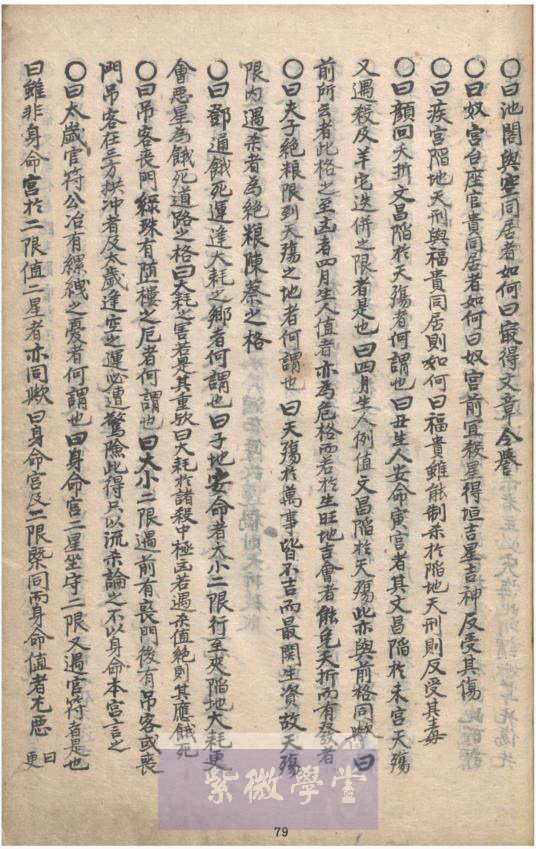 〇曰池閣與空同居者如何曰最得文章令譽
〇曰奴宮台座官貴同居者如何曰奴宮前宜殺星得垣吉星吉神反受其傷
〇曰疾宮陷地天刑與福貴同居則如何曰福貴雖能制杀於陷地天刑則反受其毒
〇曰顏回夭折文昌陷於天殤者何謂也曰丑生人安命寅宮者其文昌陷於未宮天殤
又遇殺及羊宅迭併之限者是也曰四月生人例值文昌陷於天殤此亦與前格同歟曰
前所云者此格之至凶者四月生人值者亦為危格而若於生旺地吉會者能免夭折而有發者
〇曰夫子絶粮限到天殤之地者何謂也曰天殤於萬事皆不吉而最関生資故天殤
限內遇杀者為絶粮陳蔡之格
〇曰鄧通餓死運逢大耗之鄉者何謂也曰子地安命者大小二限行至夾陷地大耗更
會惡星為餓死道路之格曰大耗之害若是其重歟曰大耗於諸殺中極凶若遇杀值絶則其應餓死
〇曰吊客喪門緑珠有墮樓之厄者何謂也曰大小二限遇前有喪門後有吊客或喪
門吊客在三方拱冲者及太歲逢空之運必遭驚險此得只以流杀論之不以身命本宮言之
〇曰太歲官符公冶有縲絏之憂者何謂也曰身命官二星坐守二限又遇官符者是也
曰雖非身命宮於二限值二星者亦同歟曰身命宮及二限槩同而身命值者尤惡 曰更
紫微學堂
79